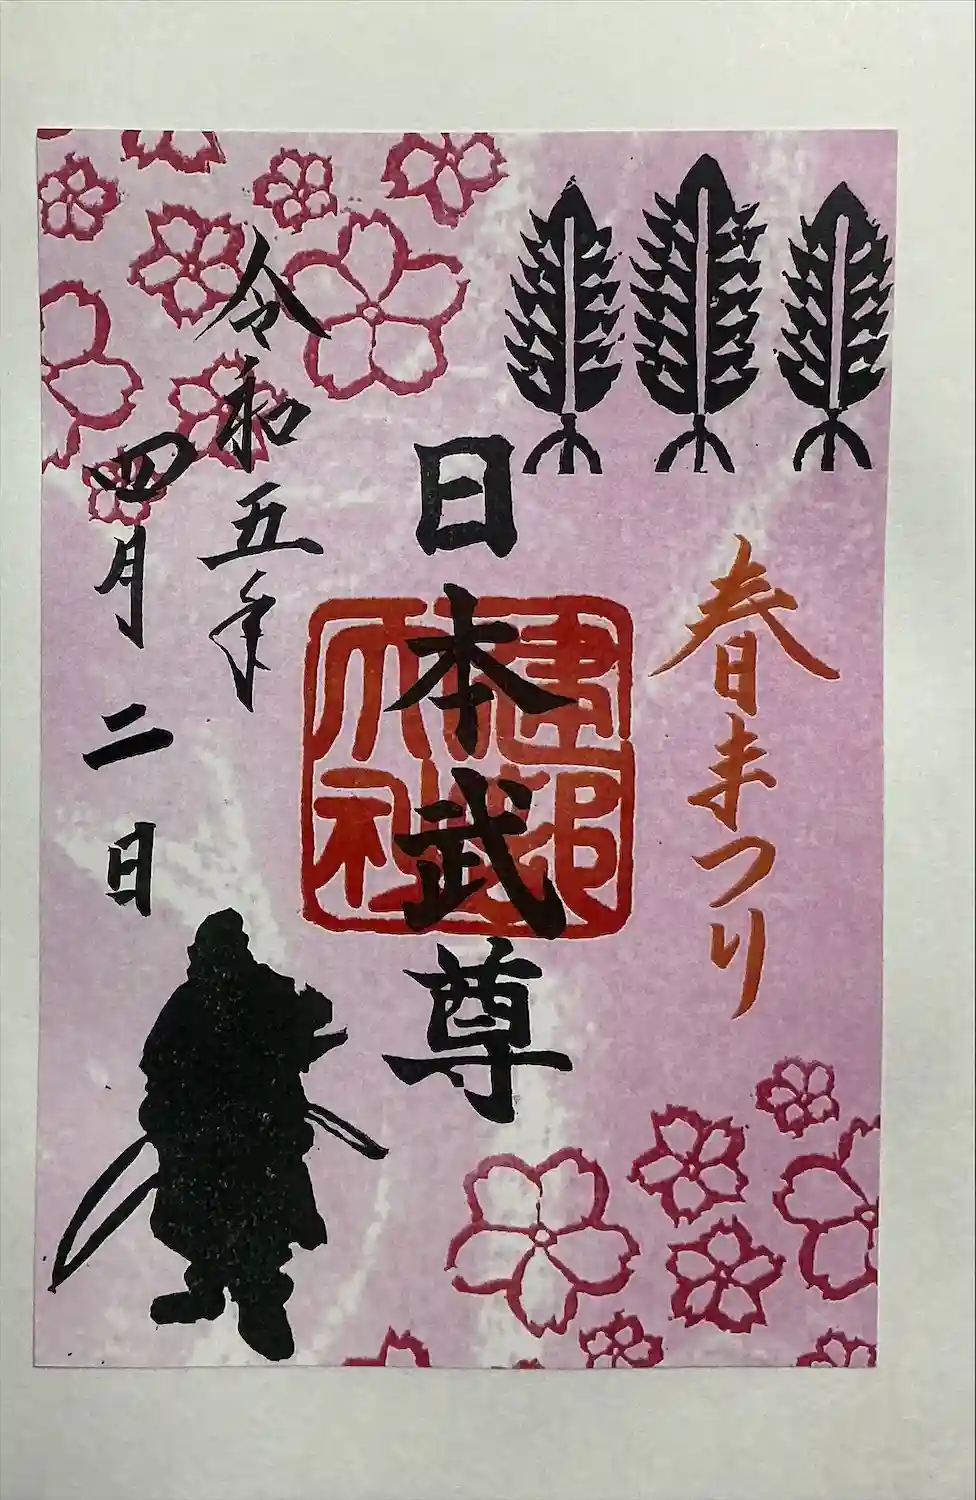 春まつり
日本武尊
建部
大社
令和五年
四月二日